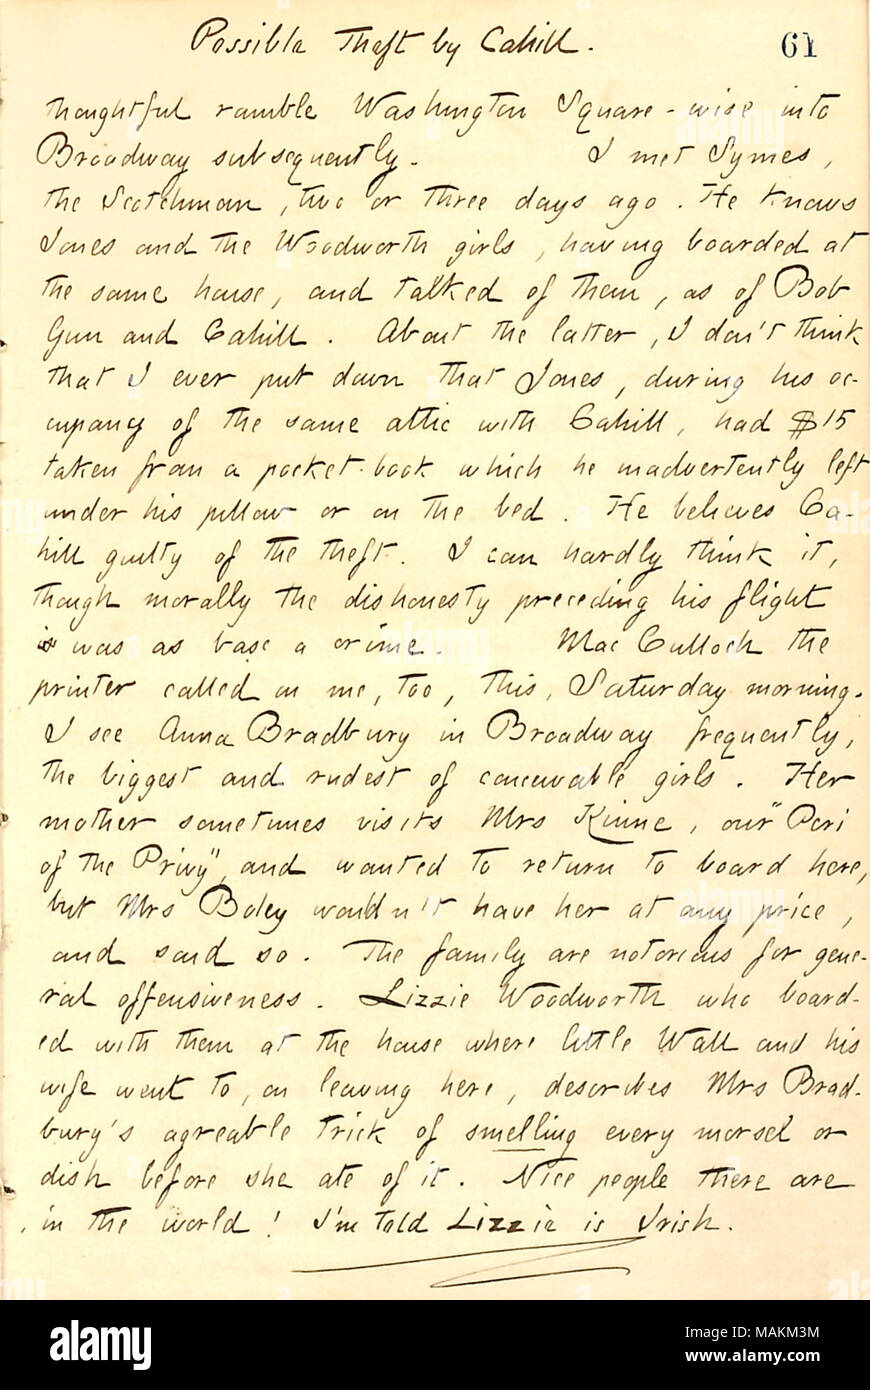 Possible Theft by Cahill.
61
thoughtful ramble Washington Square-wise into
Broadway subsequently. I met Symes,
the Scotchman, two or three days ago. He knows
Jones and the Woodworth girls, having boarded at
the same house, and talked of them, as of Bob
Gun and Cahill. About the latter, I don't think
that I ever put down that Jones, during his oc-
cupancy of the same attic with Cahill, had $15
taken from a pocket-book which he inadvertently left
under his pillow or on the bed. He believes Ca-
hill guilty of the theft. I can hardly think it,
though morally the dishonesty preceding his flight
was as base a crime. Mac Culloch the
printer called on me, too, this, Saturday morning.
I see Anna Bradbury in Broadway frequently,
the biggest and rudest of conceivable girls. Her
mother sometimes visits Mrs Kinne, our "Peri
of the Privy", and wanted to return to board here,
but Mrs Boley wouldn't have her at any price,
and said so. The family are notorious for gene-
ral offensiveness. Lizzie Woodworth who board-
ed with them at the house where little Wall and his
wife went to, on leaving here, describes Mrs Brad-
bury's agreable trick of smelling every morsel or
dish before she ate of it. Nice people there are
in the world! I'm told Lizzie is Irish.
alamy
Image ID: MAKM3M
www.alamy.com